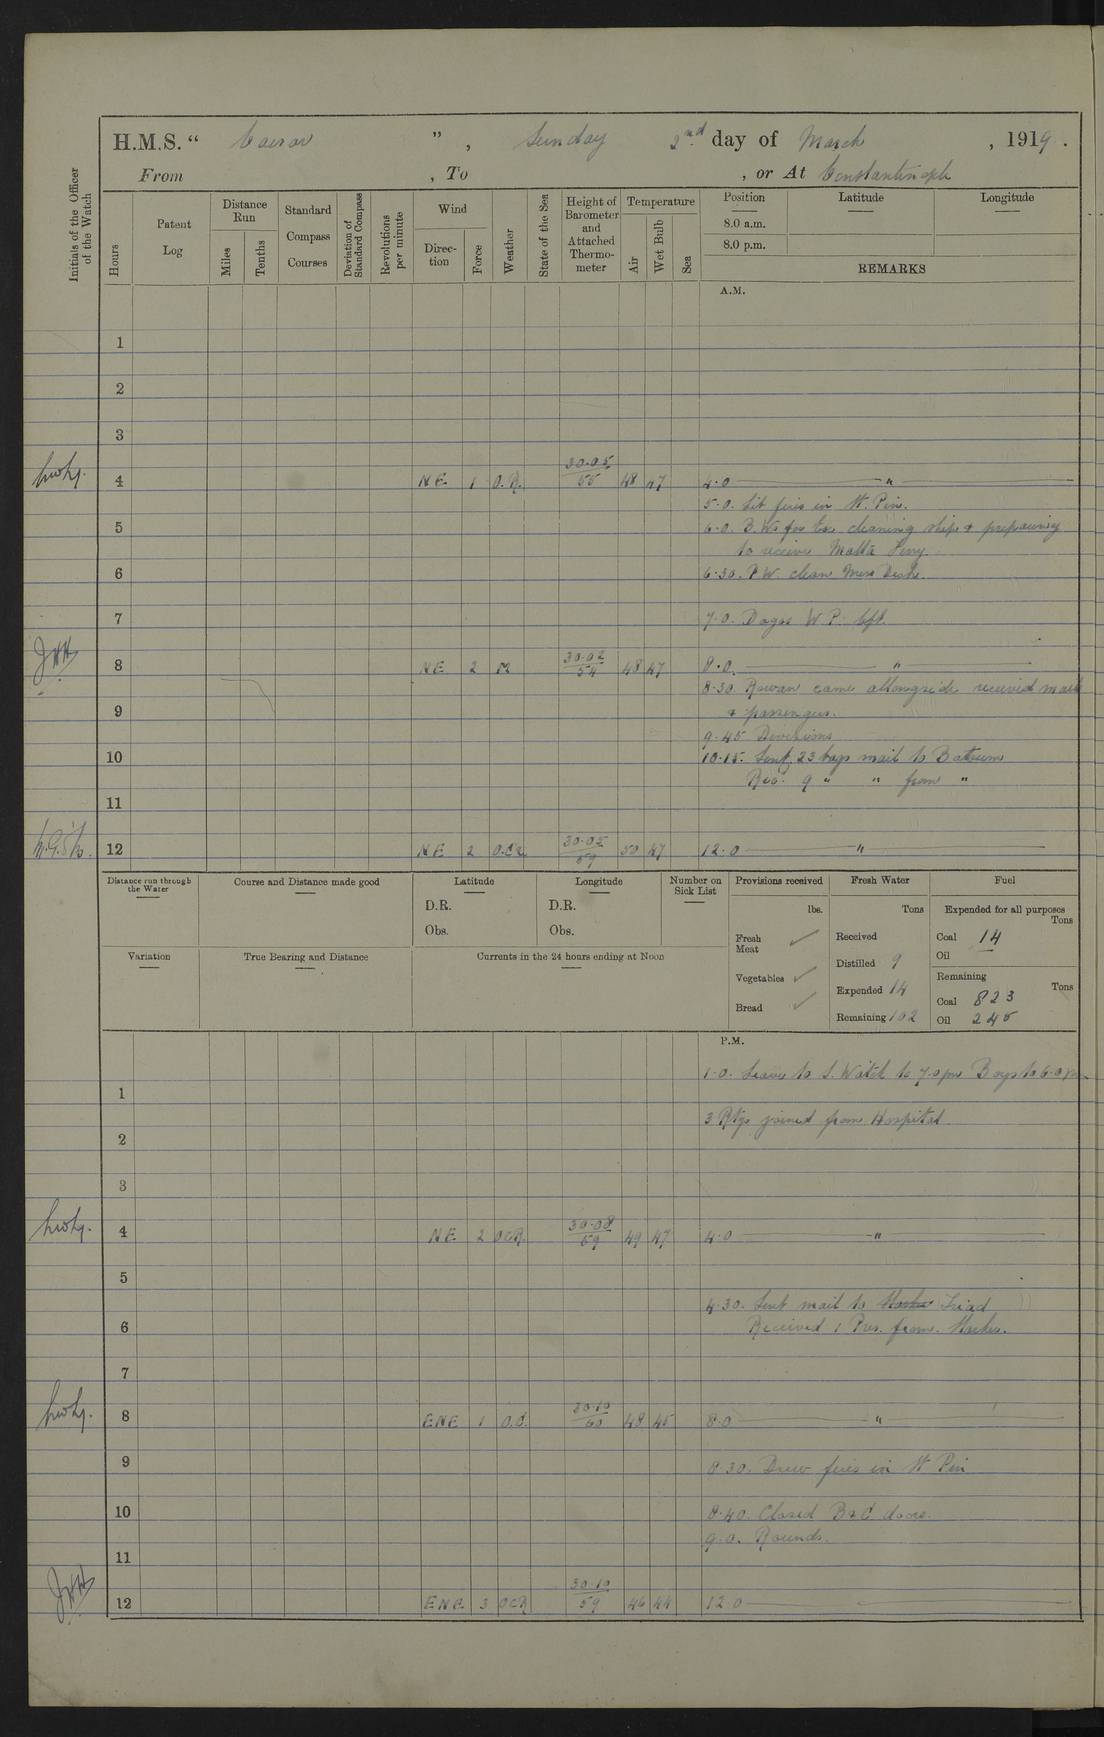 H.M.S. "Caesar", Sunday 2nd day of March, 1919.
From , To , or At Constantinople
Initials of the Officer of the Watch
Hours
Patent Log
Distance Run
Miles
Tenths
Standard Compass Courses
Deviation of Standard Compass
Revolutions per minute
Wind
Direction
Force
Weather
State of the Sea
Height of Barometer and Attached Thermometer
Temperature
Air
Wet Bulb
Sea
Position
Latitude
Longitude
8.0 a.m.
8.0 p.m.
REMARKS
A.M.
1
2
3
4 NE 1 O.R. 30.05/55 48 47 4.0 "
5.0. Lit fires in W. Pin.
5 6.0. B.W. for Ex. cleaning ship & preparing
to receive Malta Ferry.
6 6.30. P.W. clean Mess Decks.
7 7.0. Dages W P. left.
8 NE 2 M 30.02/54 48 47 8.0. "
8.30. Rowan came alongside received mail
9 & passengers.
9.45 Divisions
10 10.15. Sent 23 bags mail to Batoum
Rec. 9 " " from "
11
12 NE 2 O.C.R. 30.05/59 50 47 12.0 "
Distance run through the Water
Course and Distance made good
Latitude
D.R.
Obs.
Longitude
D.R.
Obs.
Number on Sick List
Provisions received
lbs.
Fresh Meat ✓
Vegetables ✓
Bread ✓
Fresh Water
Tons
Received
Distilled 9
Expended 14
Remaining 102
Fuel
Expended for all purposes
Tons
Coal 14
Oil —
Remaining
Tons
Coal 823
Oil 245
Variation
True Bearing and Distance
Currents in the 24 hours ending at Noon
P.M.
1.0. Leave to S. Watch to 7.0 pm Boys to 6.0 pm.
1
3 Rtgs joined from Hospital.
2
3
4 NE 2 OCR. 30.08/59 49 47 4.0 "
5
4.30. Sent mail to Triad
6 Received 1 Pas. from
7
8 ENE 1 O.C. 30.10/60 48 45 8.0 "
9 8.30. Drew fires in W Pin
10 8.40. Closed B & C doors.
9.0. Rounds.
11
12 ENE 3 OCR 30.10/59 46 44 12.0